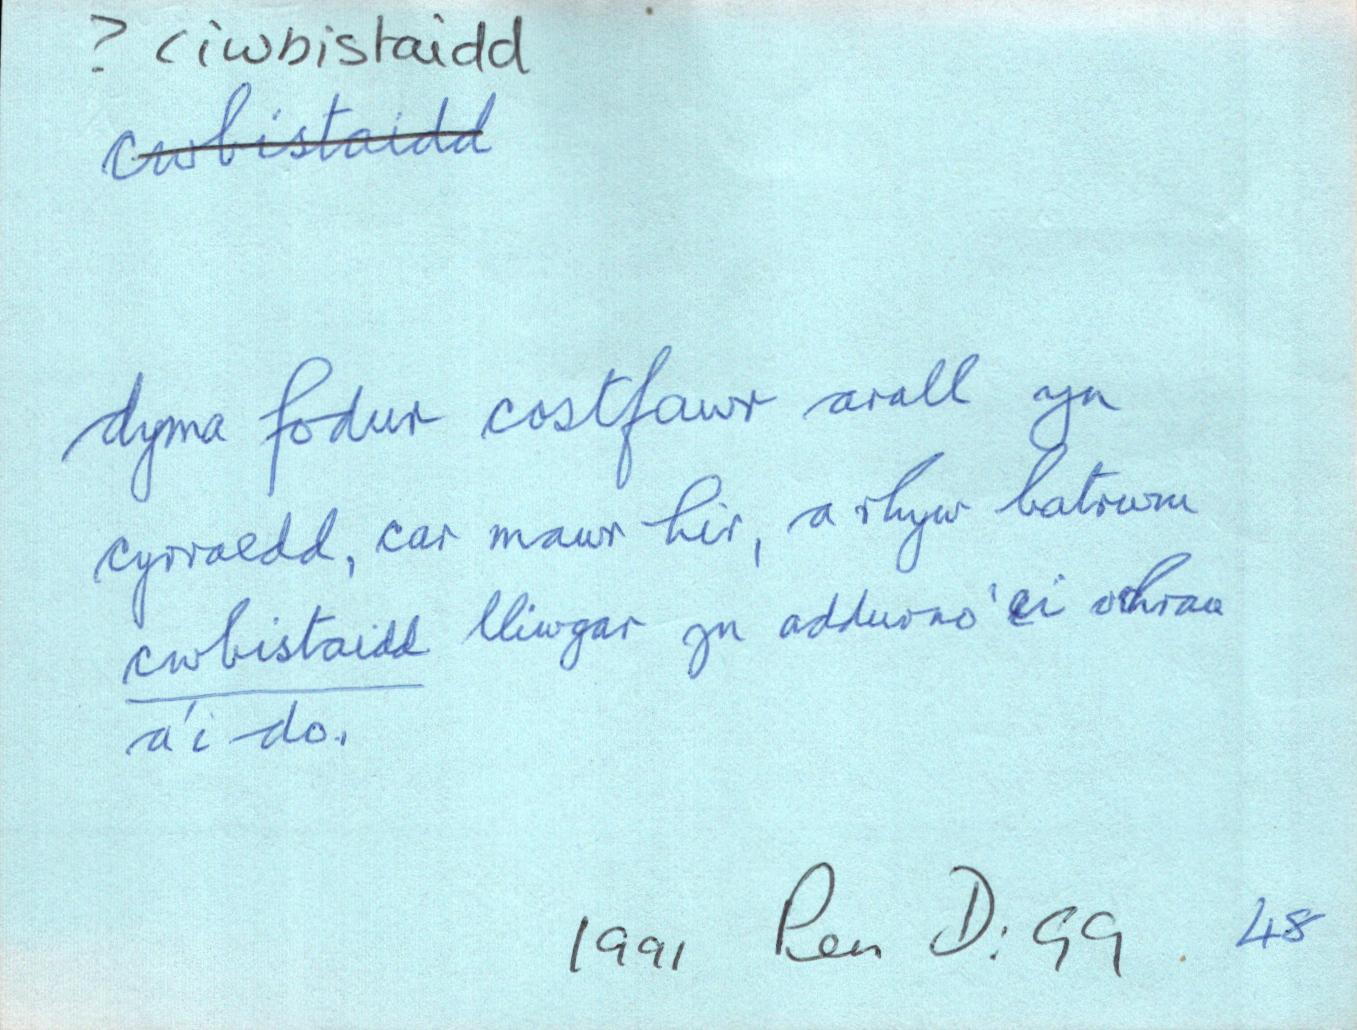 ? ciwbistaidd
cwbistaidd
dyma fodur costfawr arall yn
cyrraedd, car mawr hir, a rhyw batrwm
cwbistaidd lliwgar yn addurno'ei ochrau
a'i do.
1991 Ren D: GG 48